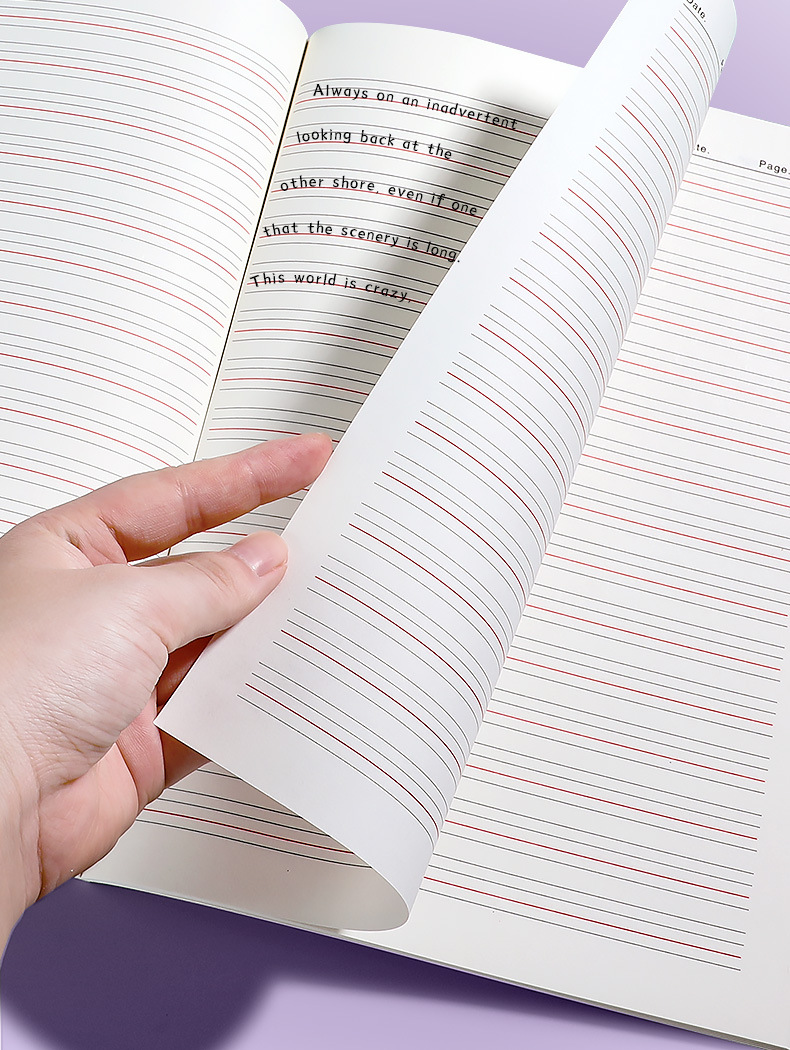 Always on an inadvertent
looking back at the
other shore, even if one
that the scenery is long.
This world is crazy,
Date.
te.
Page.